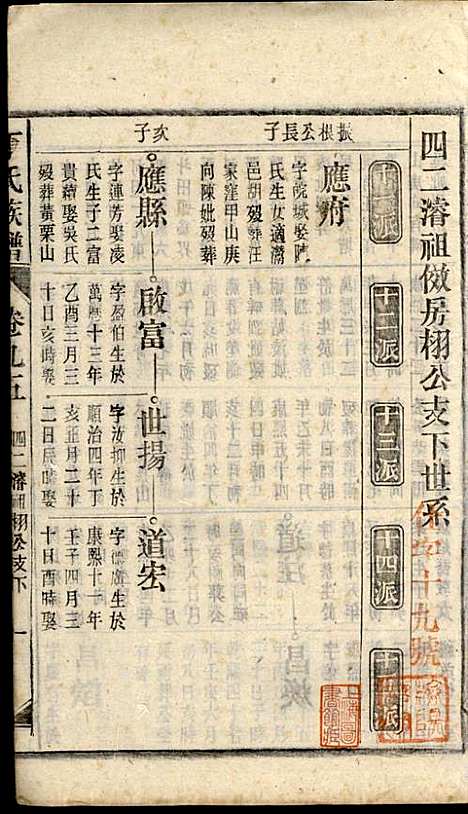 四二濬祖傲房栩公支下世系
十一派
十二派
十三派
十四派
十五派
振根公長子
應府
字皖城娶陳
氏生女適潛
邑胡歿葬汪
家窪甲山庚
向陳妣歿葬
次子
應縣
字蓮芳娶凌
氏生子二富
貴續娶吳氏
歿葬黃栗山
啟富
字盈伯生於
萬曆十三年
乙酉三月三
十日亥時娶
世揚
字汝抑生於
順治四年丁
亥正月二十
二日辰時娶
道宏
字德廣生於
康熙十一年
壬子四月三
十日酉時娶
氏族譜
卷九五
四二濬祖栩公支下
一
十九號